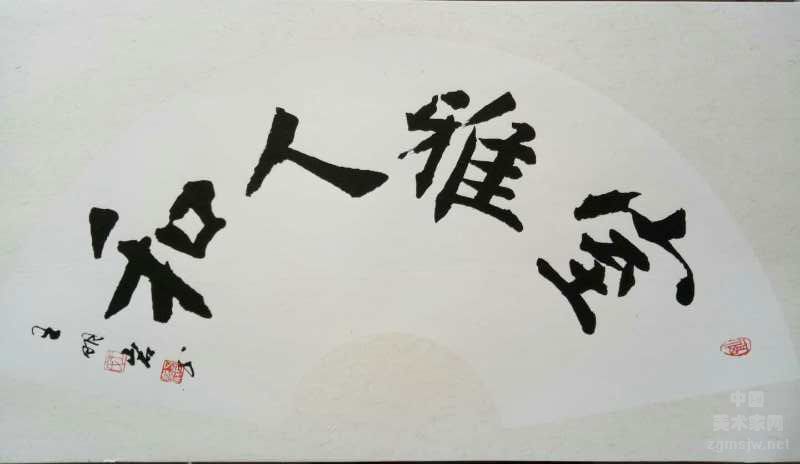 室雅人和
中国
美术家网
zgmsjw.net